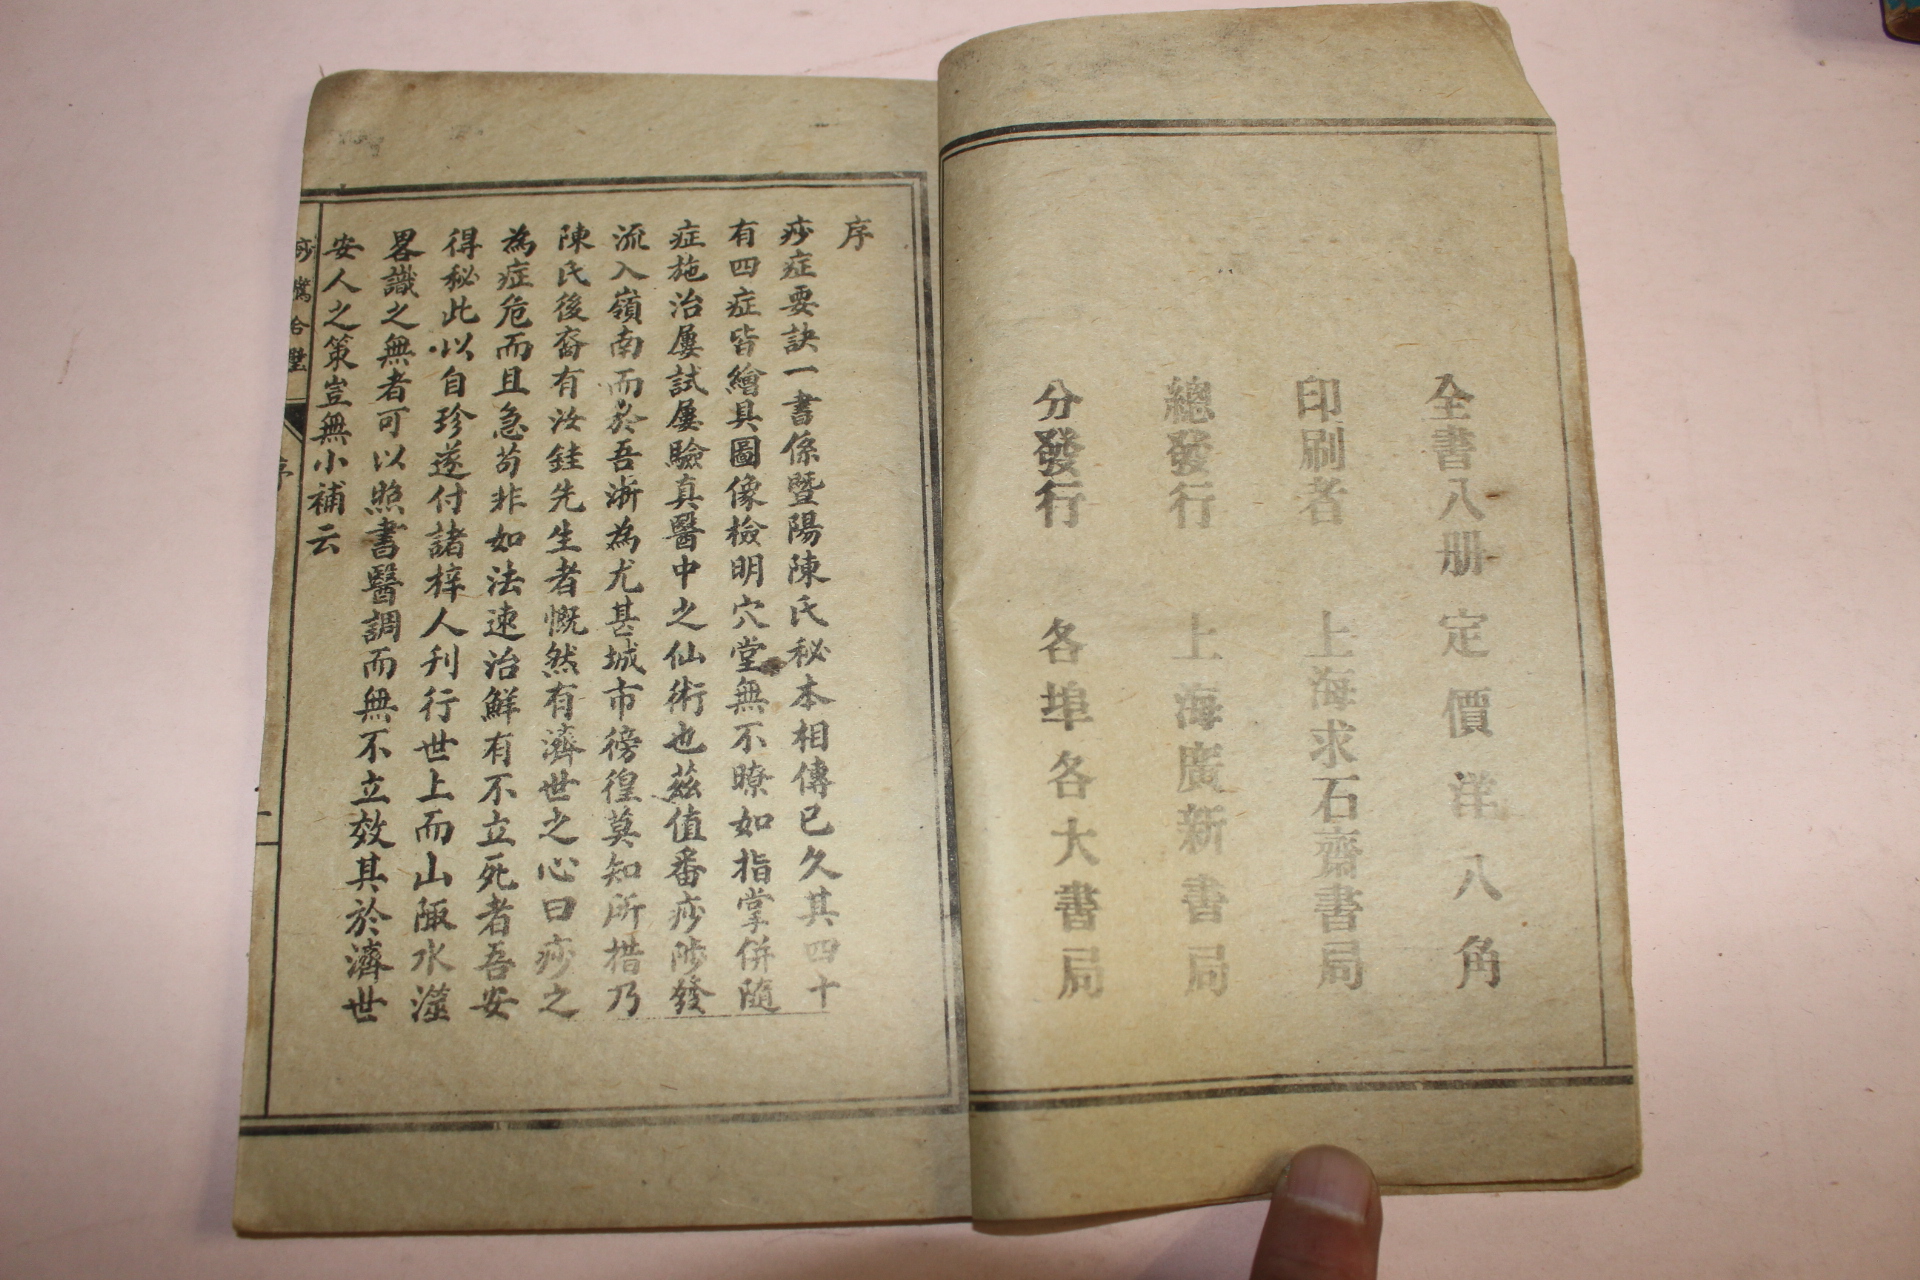 全書八册定價洋八角
印刷者 上海求石齋書局
總發行 上海廣新書局
分發行 各埠各大書局
序
痧症要訣一書係暨陽陳氏秘本相傳已久其四十
有四症皆繪具圖像檢明穴堂無不暸如指掌併隨
症施治屢試屢驗真醫中之仙術也茲值番痧陟發
流入嶺南而於吾浙為尤甚城市徬徨莫知所措乃
陳氏後裔有汝銈先生者慨然有濟世之心曰痧之
為症危而且急苟非如法速治鮮有不立死者吾安
得秘此以自珍遂付諸梓人刋行世上而山陬水澨
畧識之無者可以照書醫調而無不立效其於濟世
安人之策豈無小補云
序
一